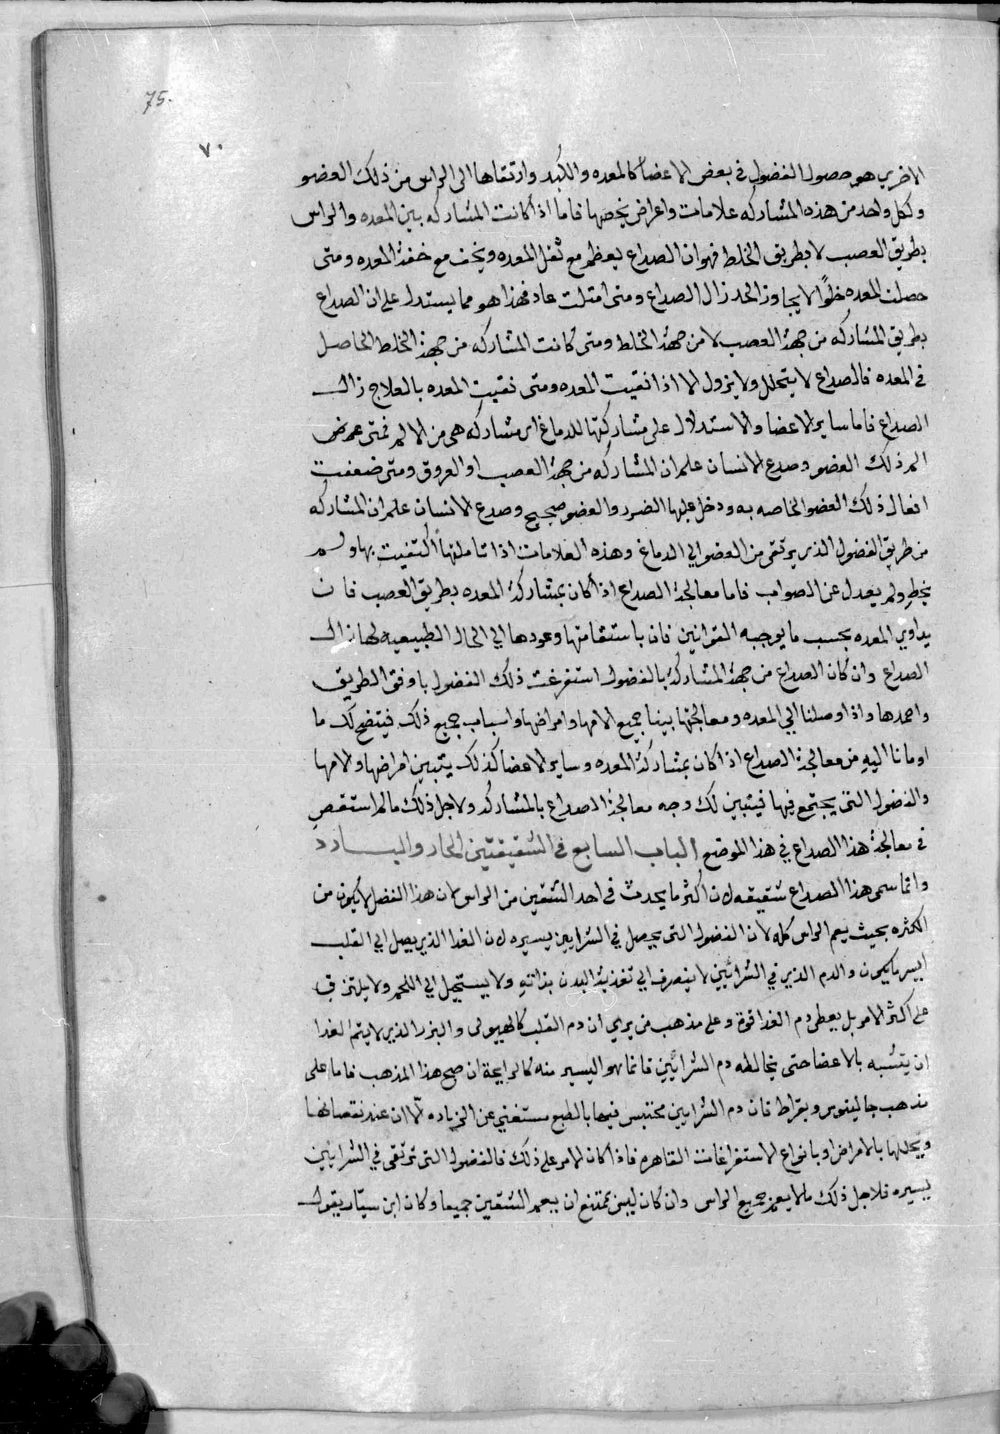 75.
٧٠
الاخري هو حصول الفضول في بعض الاعضا كالمعده والكبد وارتقاها الى الراس من ذلك العضو
وكل واحد من هذه المشاركه علامات واعراض يخصها فاما اذا كانت المشاركه بين المعده والراس
بطريق العصب لا بطريق الخلط فهو ان الصداع يعظم مع ثقل المعده ويخف مع خفة المعده ومتى
حصلت المعده خلوًا لا يجاوز الحد زال الصداع ومتى امتلت عاد فهذا هو مما يستدل على ان الصداع
بطريق المشاركه من جهة العصب لا من جهة الخلط ومتى كانت المشاركه من جهة الخلط الحاصل
في المعده فالصداع لا يتحلل ولا يزول الا اذا نقيت المعده ومتى نقيت المعده بالعلاج زال
الصداع فاما ساير الاعضا والاستدلال على مشاركتها للدماغ اي مشاركه هي من الالم فمتى عرض
الم ذلك العضو وصدع الانسان علم ان المشاركه من جهة العصب او العروق ومتى ضعفت
افعال ذلك العضو الخاصه به ودخل عليها الضرر والعضو صحيح وصدع الانسان علم ان المشاركه
من طريق الفضول الذي يرتقى من العضو الي الدماغ وهذه العلامات اذا تاملتها اكتفيت بها ولم
يخطِ ولم يعدل عن الصواب فاما معالجة الصداع اذا كان بمشاركة المعده بطريق العصب فان
يداوي المعده بحسب ما يوجبه القوانين فان باستقامتها وعودها الي الحال الطبيعيه لها زال
الصداع وان كان الصداع من جهة المشاركة بالفضول استفرغت ذلك الفضول باوفق الطريق
واحمدها واذا وصلنا الي المعده ومعالجتها بينا جميع الامها وامراضها واسباب جميع ذلك فيتضح لك ما
اومانا اليهِ من معالجة الصداع اذا كان بمشاركة المعده وساير الاعضا كذلك يتبين امراضها والامها
والفضول التى يجتمع فيها فيتبين لك وجه معالجة الصداع بالمشاركه ولاجل ذلك ما لم استقصِ
في معالجة هذا الصداع في هذا الموضع الباب السابع في الشقيقتين الحار والبارد
وانما سمى هذا الصداع شقيقه لان اكثر ما يحدث في احد الشقين من الراس لان هذا الفضل لا يكون من
الكثره بحيث يعم الراس كله لان الفضول التى يحصل في الشرايين يسيره لان الغذا الذي يصل الي القلب
ايسر ما يكون والدم الذي في الشرائين لا ينصرف الي تغذية البدن بذاتهِ ولا يستحيل الي اللحم ولا يلتزق
على اكثر الامر بل يعطى دم الغذا قوة وعلى مذهب من يري ان دم القلب كالهيولى والبزر الذي لا يتم الغذا
ان يتشبه بالاعضا حتى يخالطه دم الشرائين فانما هو اليسير منه كالرايحة ان صح هذا المذهب فاما على
مذهب جالينوس وبقراط فان دم الشرايين محتبس فيها بالطبع مستغني عن الزياده الّا ان عند نقصانها
وتحللها بالامراض وبانواع الاستفراغات القاهره فاذا كان الامر على ذلك فالفضول التى ترتقى في الشرائين
يسيره فلاجل ذلك ما لا يعم جميع الراس وان كان ليس يمتنع ان يعم الشقين جميعا وكان ابن سيّار يقول